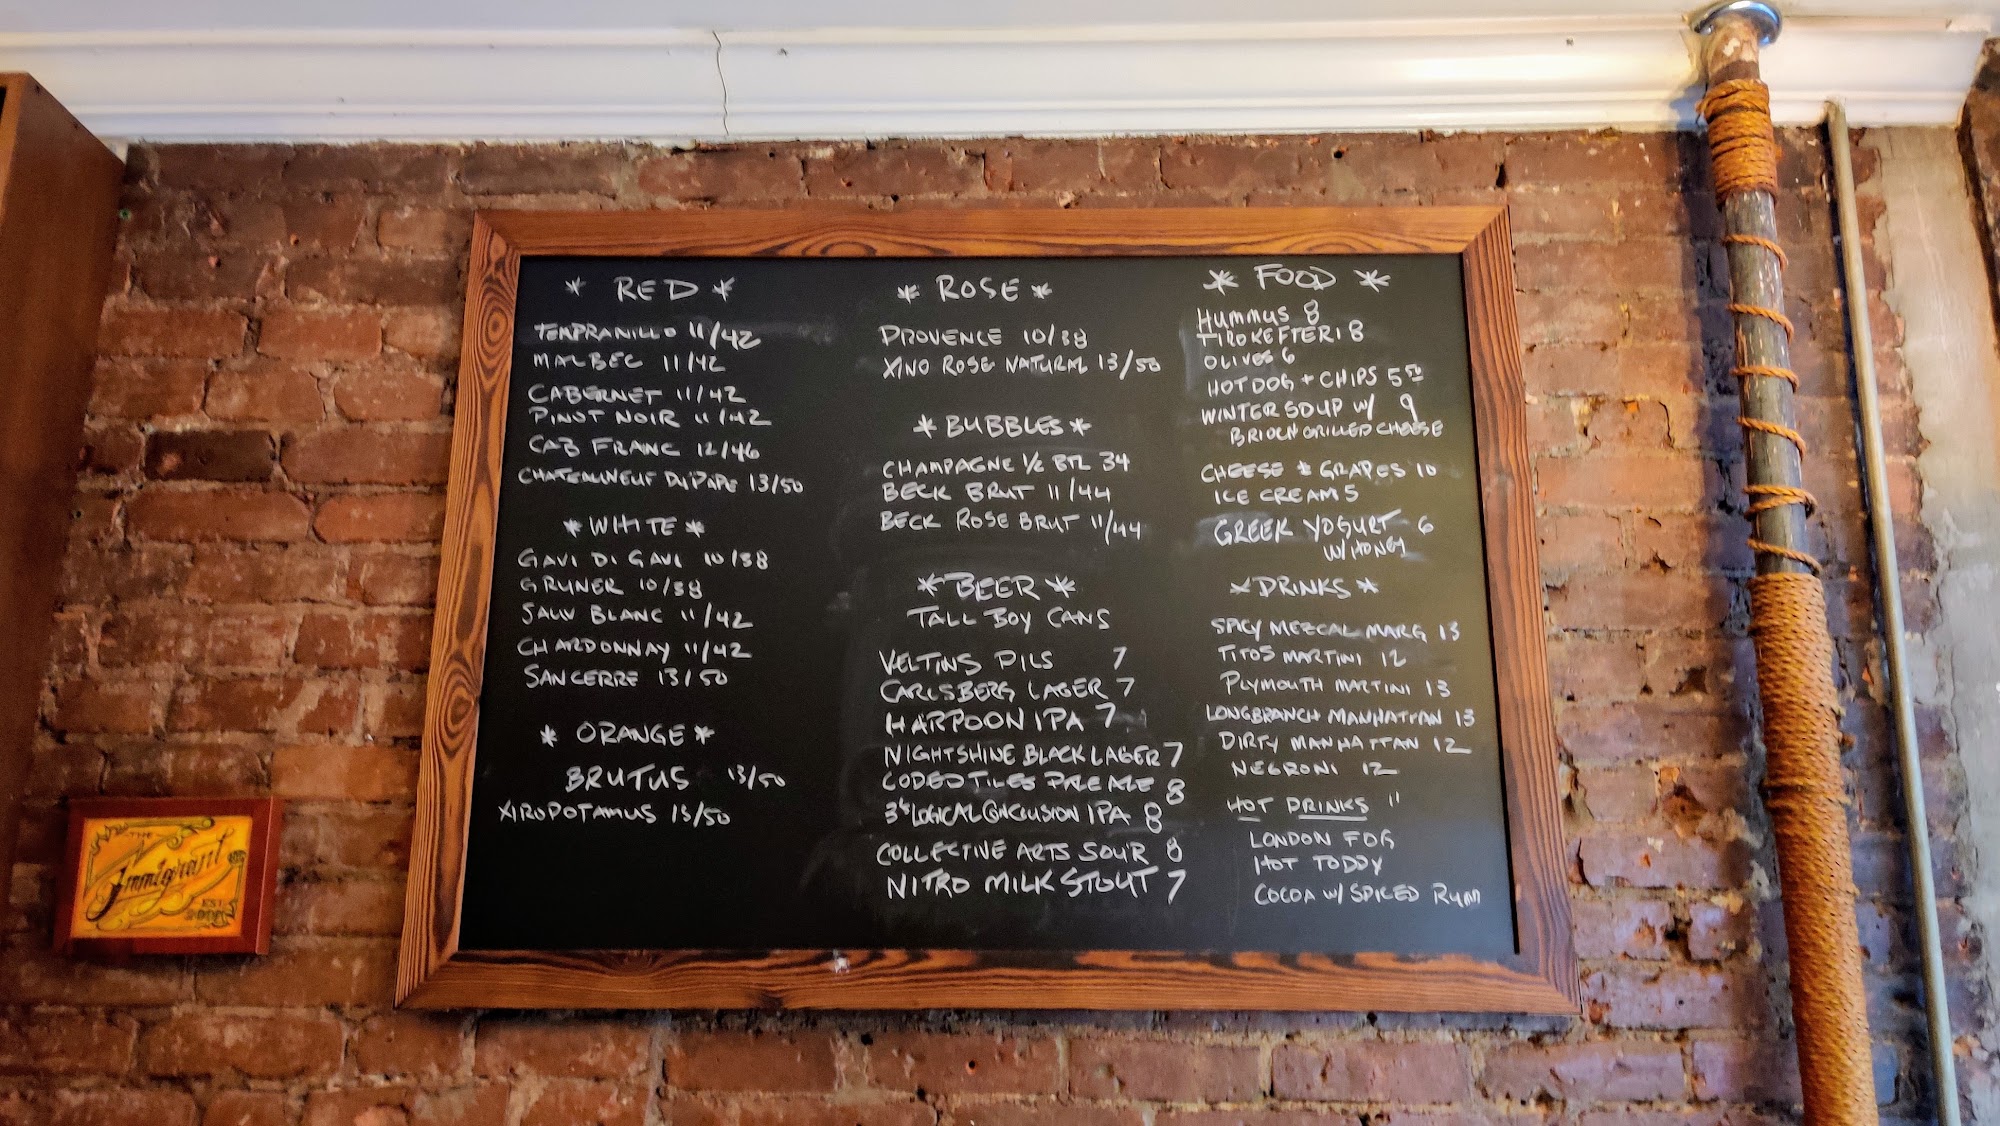 * RED *
TEMPRANILLO 11/42
MALBEC 11/42
CABERNET 11/42
PINOT NOIR 11/42
CAB FRANC 12/46
CHATEAUNEUF DU PAPE 13/50
* WHITE *
GAVI DI GAVI 10/38
GRUNER 10/38
SAUV BLANC 11/42
CHARDONNAY 11/42
SANCERRE 13/50
* ORANGE *
BRUTUS 13/50
XIROPOTAMUS 13/50
* ROSE *
PROVENCE 10/38
XINO ROSE NATURAL 13/50
* BUBBLES *
CHAMPAGNE 1/2 BTL 34
BECK BRUT 11/44
BECK ROSE BRUT 11/44
* BEER *
TALL BOY CANS
VELTINS PILS 7
CARLSBERG LAGER 7
HARPOON IPA 7
NIGHTSHINE BLACK LAGER 7
CODED TILES PALE ALE 8
LOGICAL CONCLUSION IPA 8
COLLECTIVE ARTS SOUR 8
NITRO MILK STOUT 7
* FOOD *
HUMMUS 8
TIROKEFTERI 8
OLIVES 6
HOT DOG + CHIPS 5 50
WINTER SOUP W/ 9
BRIOCH GRILLED CHEESE
CHEESE & GRAPES 10
ICE CREAM 5
GREEK YOGURT 6
W/ HONEY
* DRINKS *
SPICY MEZCAL MARG 13
TITOS MARTINI 12
PLYMOUTH MARTINI 13
LONGBRANCH MANHATTAN 13
DIRTY MANHATTAN 12
NEGRONI 12
HOT DRINKS 11
LONDON FOG
HOT TODDY
COCOA W/ SPICED RUM
THE
Immigrant
EST.